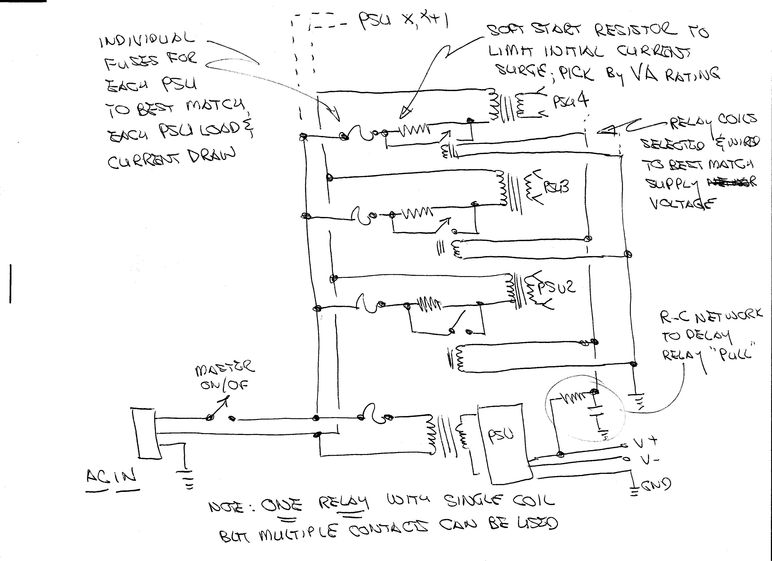 PSU X, X+1
INDIVIDUAL
FUSES FOR
EACH PSU
TO BEST MATCH
EACH PSU LOAD &
CURRENT DRAW
SOFT START RESISTOR TO
LIMIT INITIAL CURRENT
SURGE; PICK BY VA RATING
PSU4
RELAY COILS
SELECTED & WIRED
TO BEST MATCH
SUPPLY
VOLTAGE
PSU3
PSU2
R-C NETWORK
TO DELAY
RELAY "PULL"
MASTER
ON/OF
PSU
V+
V-
GND
AC IN
NOTE: ONE RELAY WITH SINGLE COIL
BUT MULTIPLE CONTACTS CAN BE USED